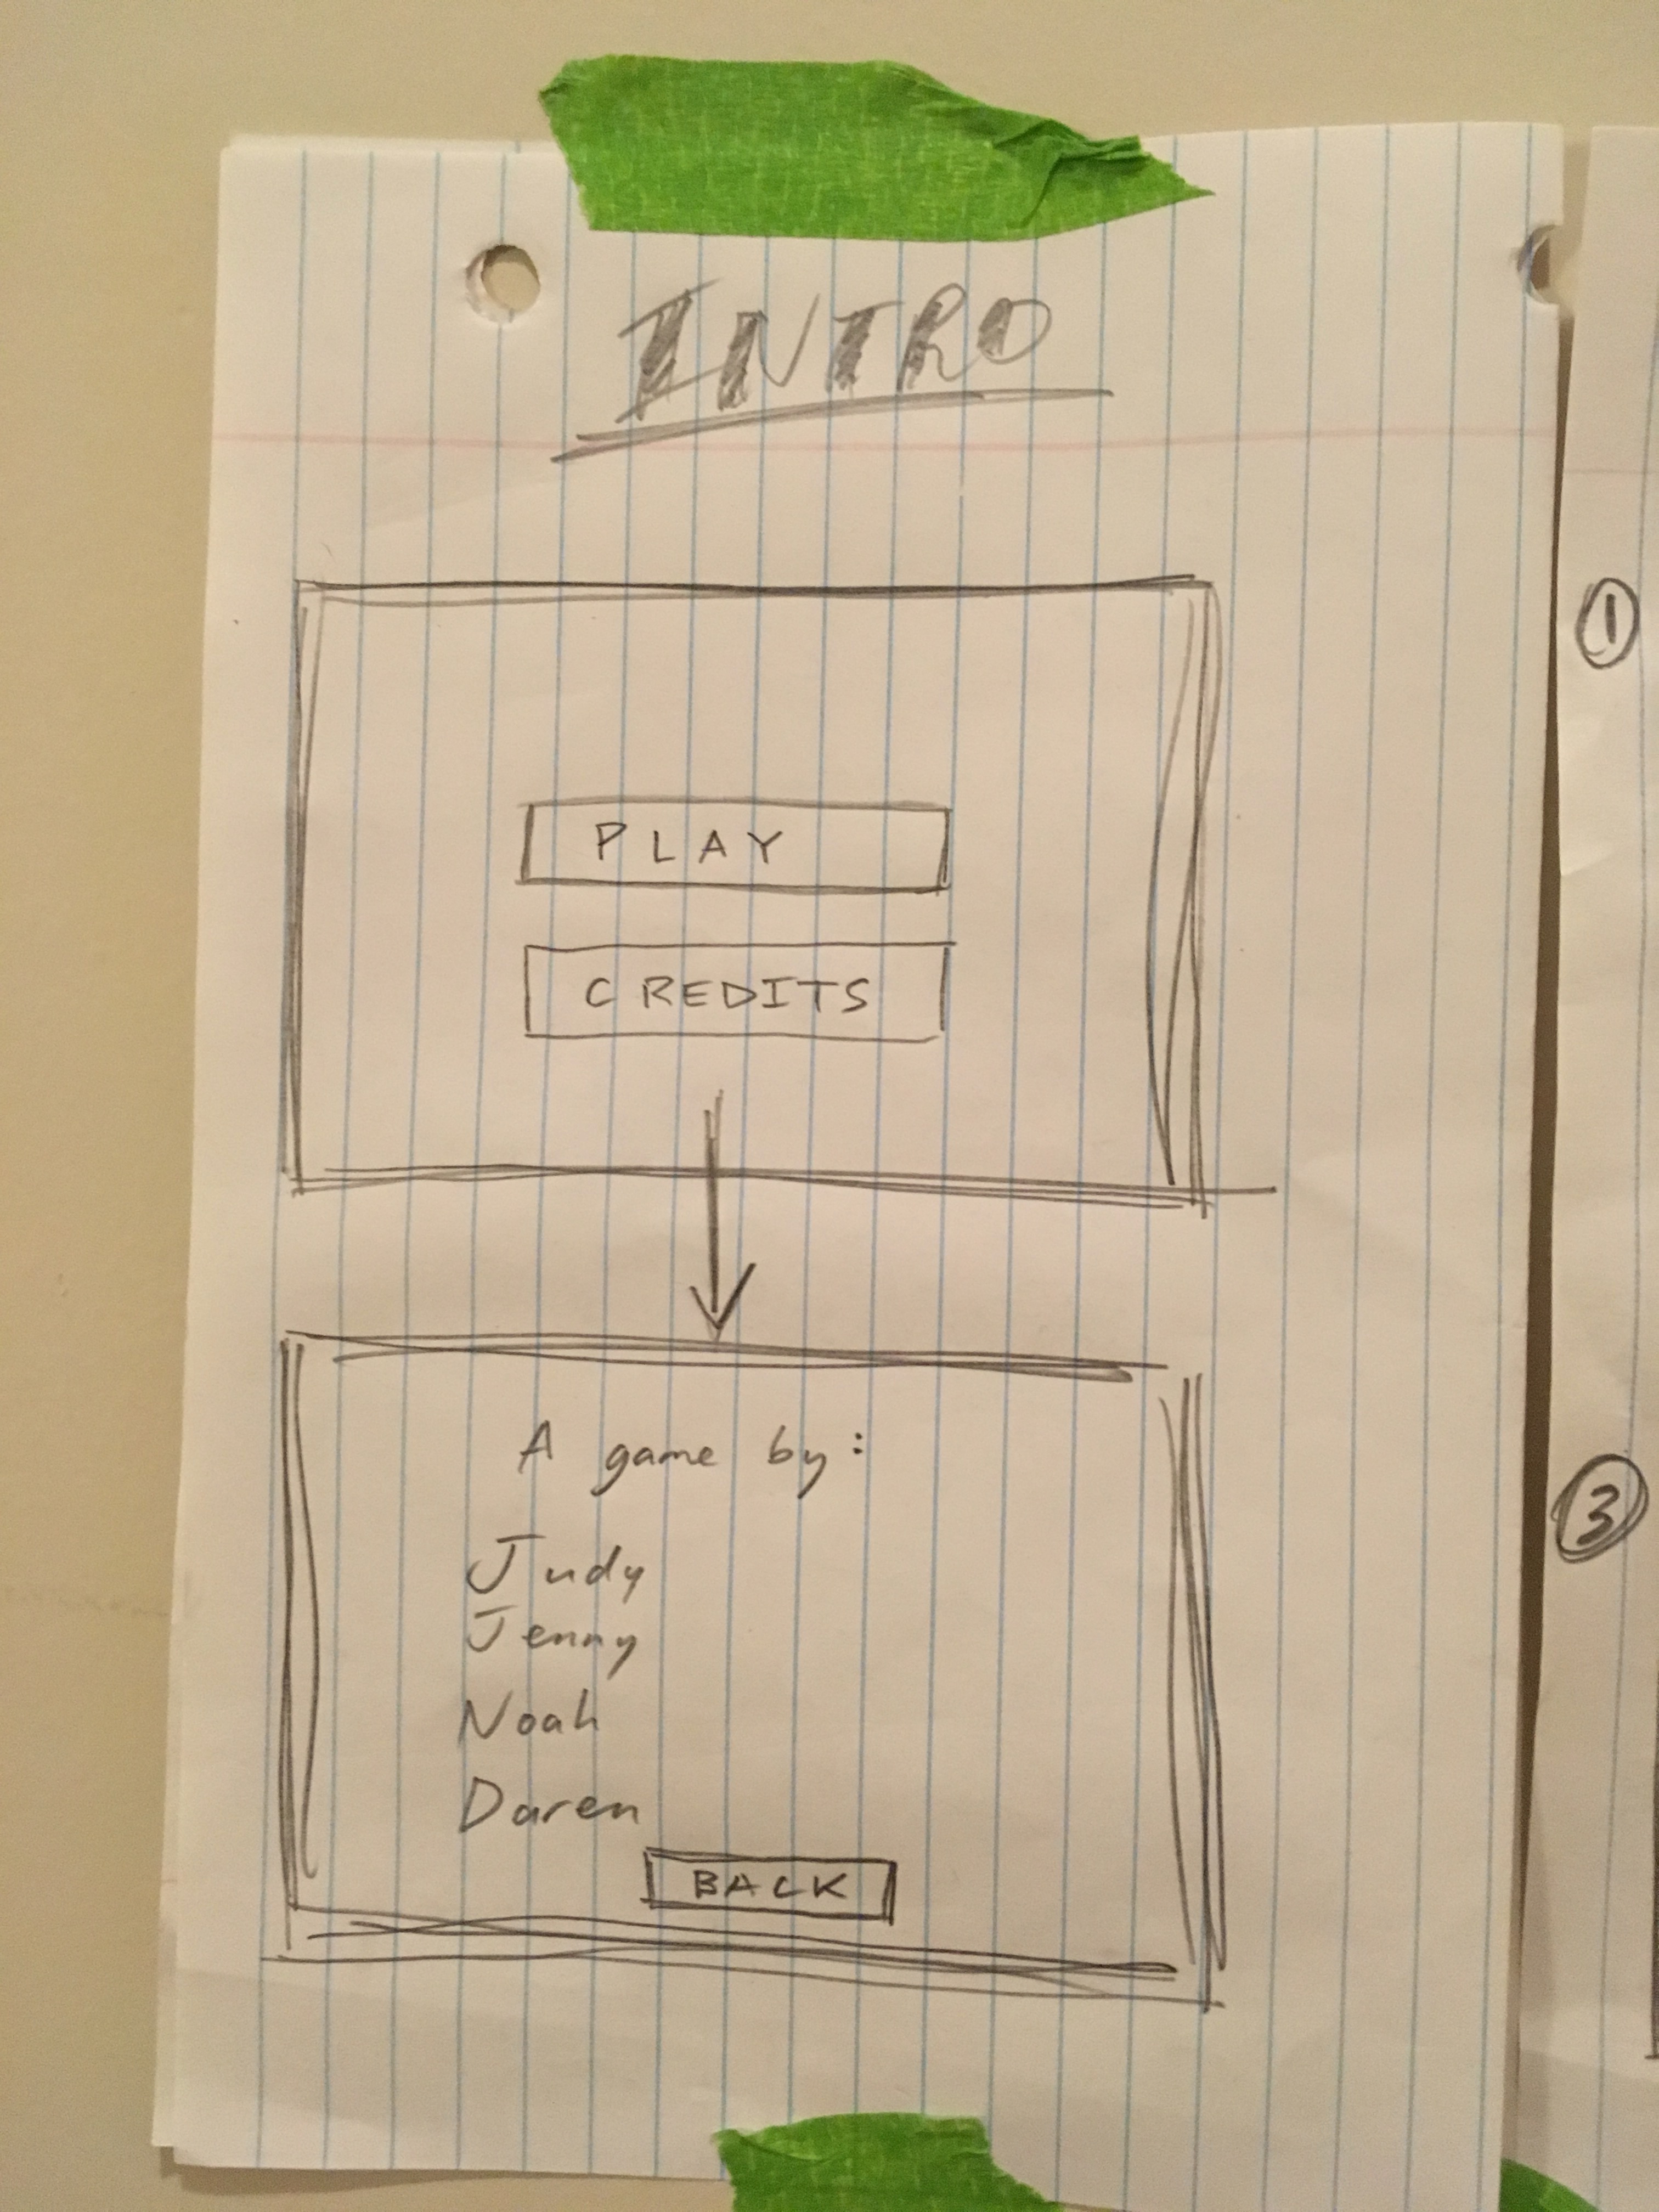 INTRO
PLAY
CREDITS
A game by:
Judy
Jenny
Noah
Daren
BACK
1
3